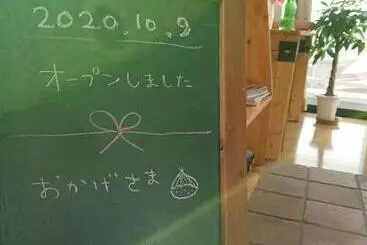 2020.10.9
オープンしました
おかげさま